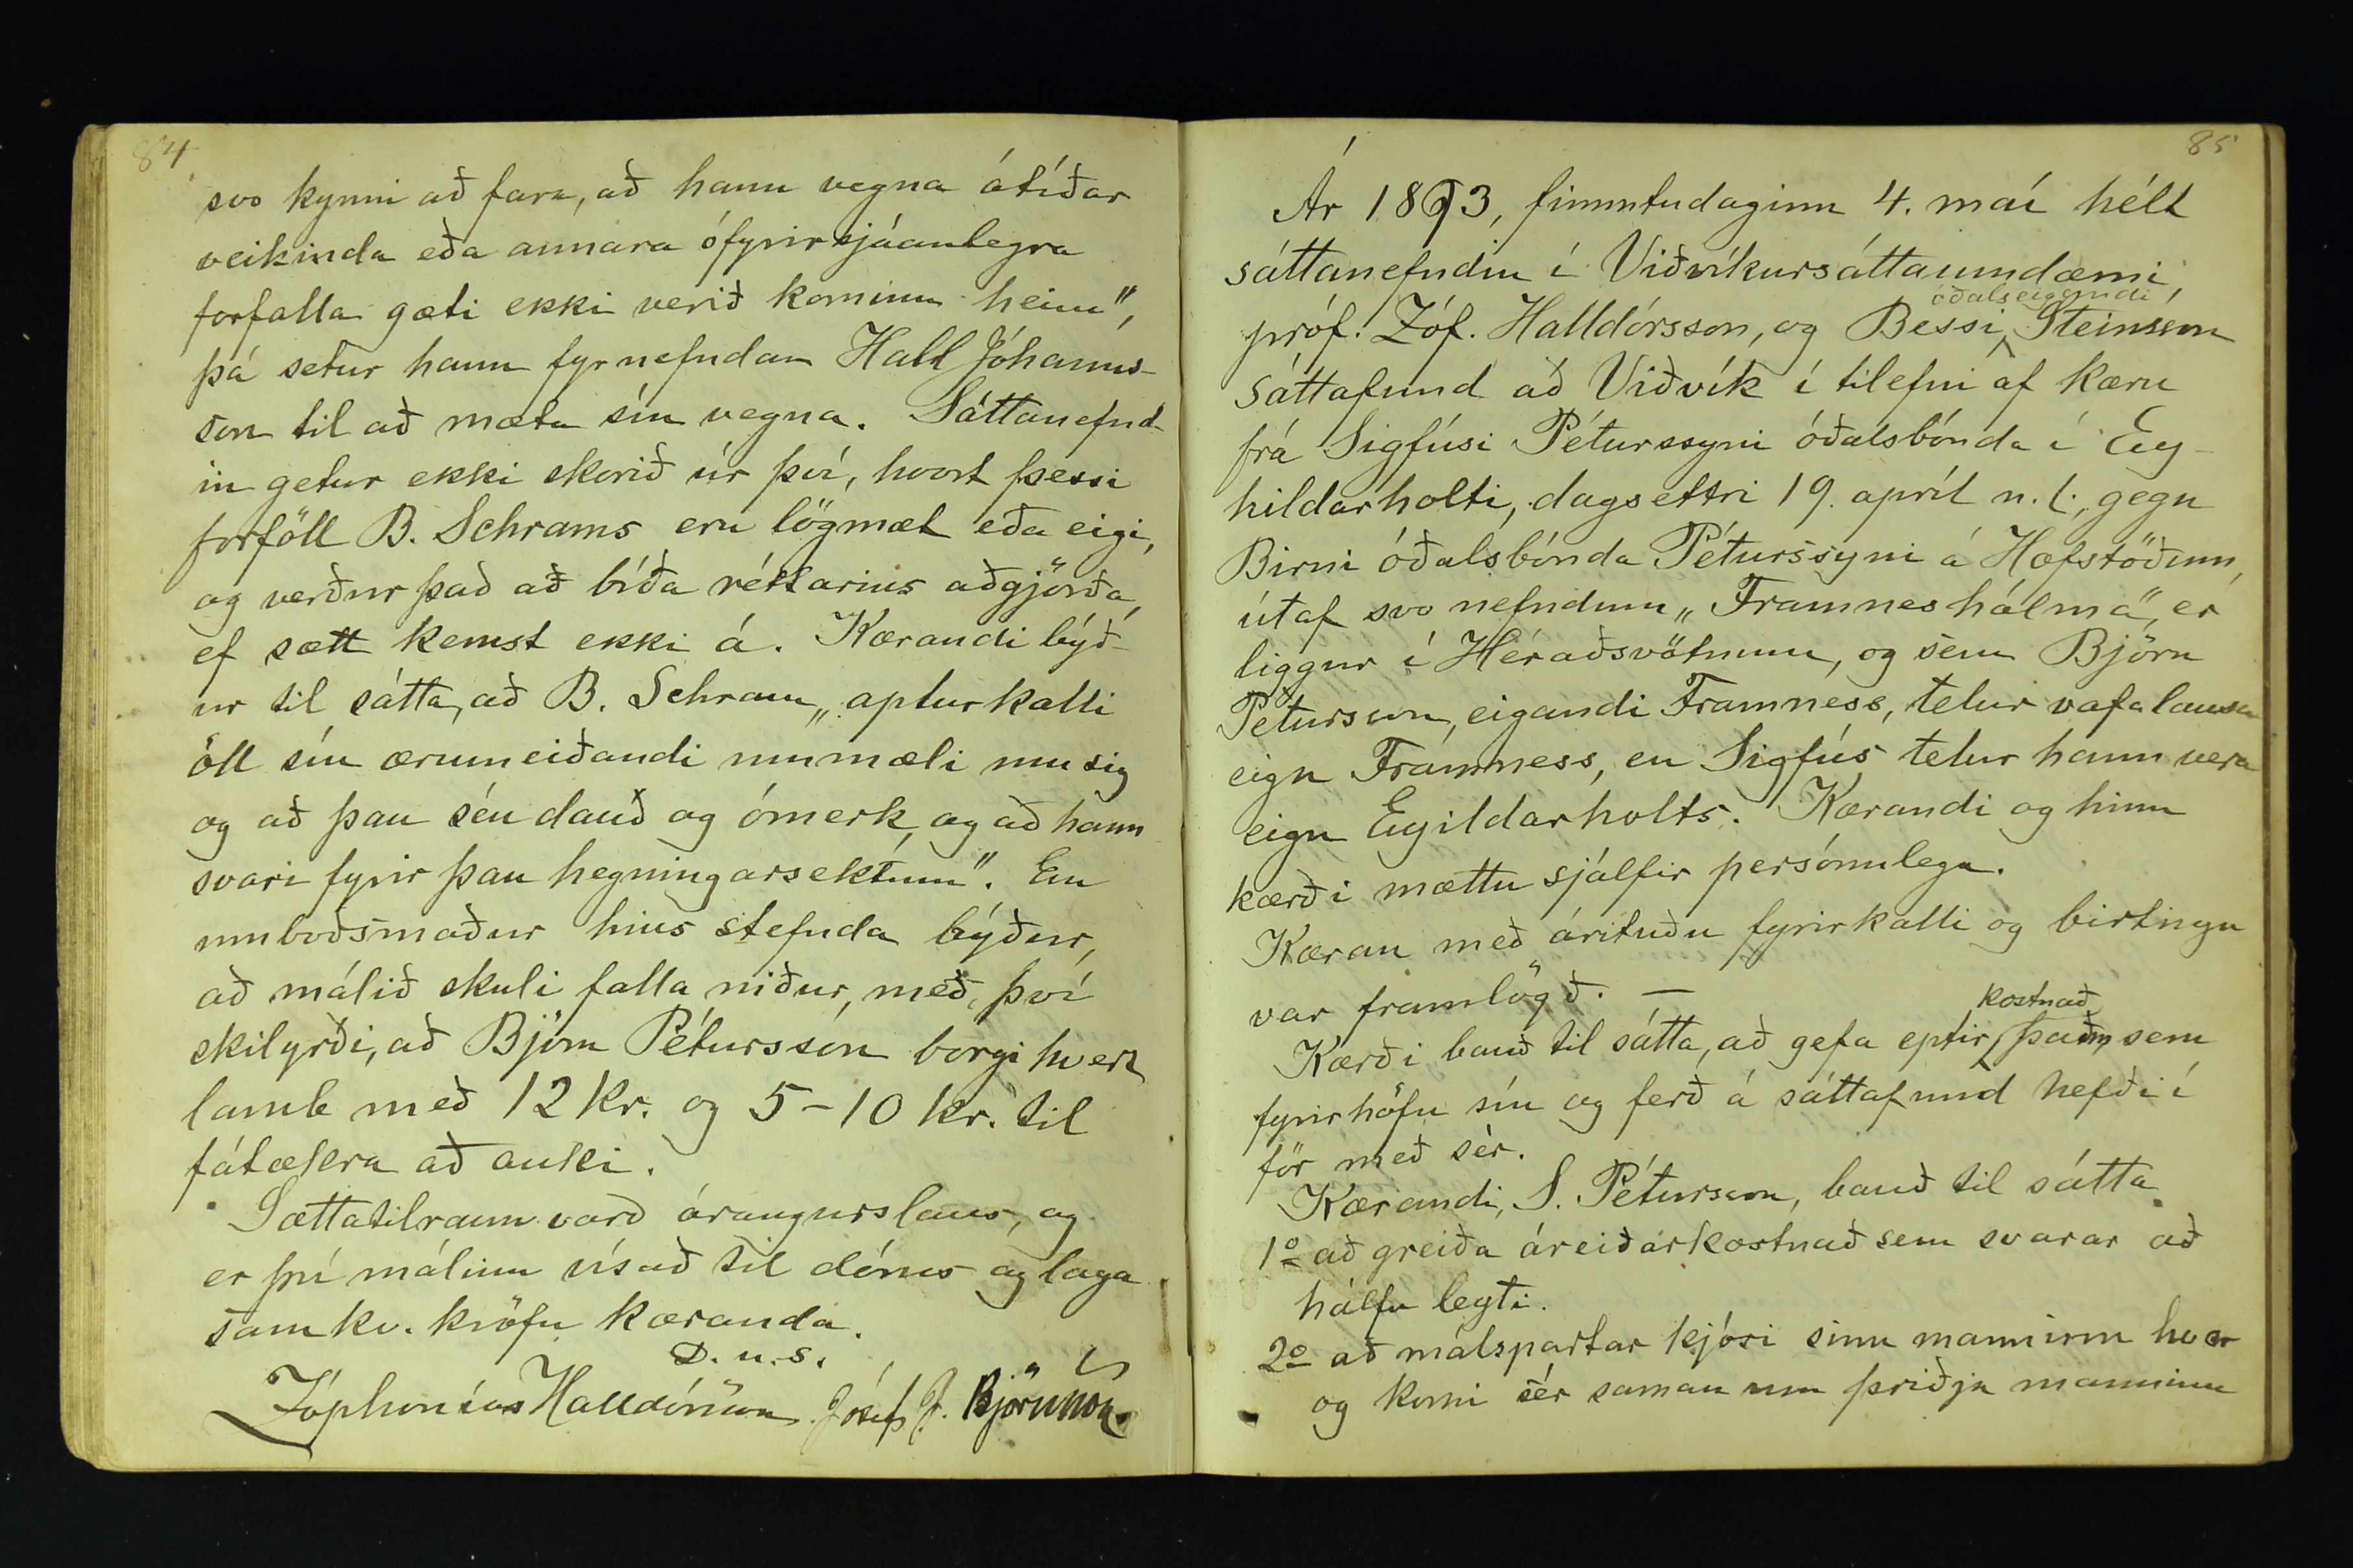 84
svo kynni að fara, að hann vegna ótíðar
veikinda eða annara ófyrirsjáanlegra
forfalla gæti ekki verið kominn heim",
þá setur hann fyrnefndan Hall Jóhanns-
son til að mæta sín vegna. Sáttanefnd-
in getur ekki skorið úr því, hvort þessi
forföll B. Schrams eru lögmæt eða eigi,
og verður það að bíða réttarins aðgjörða,
ef sætt kemst ekki á. Kærandi býð-
ur til sátta, að B. Schram „apturkalli
öll sín ærumeiðandi ummæli um sig
og að þau séu dauð og ómerk, og að hann
svari fyrir þau hegningarsektum". En
umboðsmaður hins stefnda býður,
að málið skuli falla niður, með því
skilyrði, að Björn Pétursson borgi hvert
lamb með 12 kr. og 5-10 kr. til
fátækra að auki.
Sættatilraun varð árangurslaus, og
er því málinu vísað til dóms og laga
samkv. kröfu kæranda.
D. u. s.
Zóphonías Halldórsson Jósef J. Björnsson
85
Ár 1893, fimmtudaginn 4. maí hélt
sáttanefndin í Viðvíkursáttaumdæmi,
óðalseigandi
próf. Zóf. Halldórsson, og Bessi Steinsson
sáttafund að Viðvík í tilefni af kæru
frá Sigfúsi Péturssyni óðalsbónda í Ey-
hildarholti, dagsettri 19. apríl n.l., gegn
Birni óðalsbónda Péturssyni á Hofstöðum,
útaf svo nefndum „Framneshólma", er
liggur í Héraðsvötnum, og sem Björn
Pétursson, eigandi Framness, telur vafalausa
eign Framness, en Sigfús telur hann vera
eign Eyildarholts. Kærandi og hinn
kærði mættu sjálfir persónulega.
Kæran með árituðu fyrirkalli og birtingu
var framlögð. —
kostnað
Kærði bauð til sátta, að gefa eptir þann, sem
fyrirhöfn sín og ferð á sáttafund hefði í
för með sér.
Kærandi, S. Pétursson, bauð til sátta
1º að greiða áreiðarkostnað sem svarar að
hálfu leyti.
2º að málspartar kjósi sinn manninn hvor
og komi sér saman um þriðja manninn